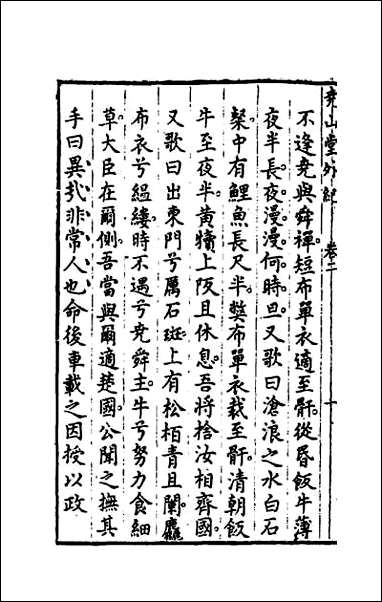 堯山堂外紀 卷二
不逢堯與舜禪短布單衣適至骭從昏飯牛薄
夜半長夜漫漫何時旦又歌曰滄浪之水白石
粲中有鯉魚長尺半獘布單衣裁至骭清朝飯
牛至夜半黃犢上阪且休息吾將捨汝相齊國
又歌曰出東門兮厲石斑上有松栢青且闌麤
布衣兮縕縷時不遇兮堯舜主牛兮努力食細
草大臣在爾側吾當與爾適楚國公聞之撫其
手曰異㢤非常人也命後車載之因授以政